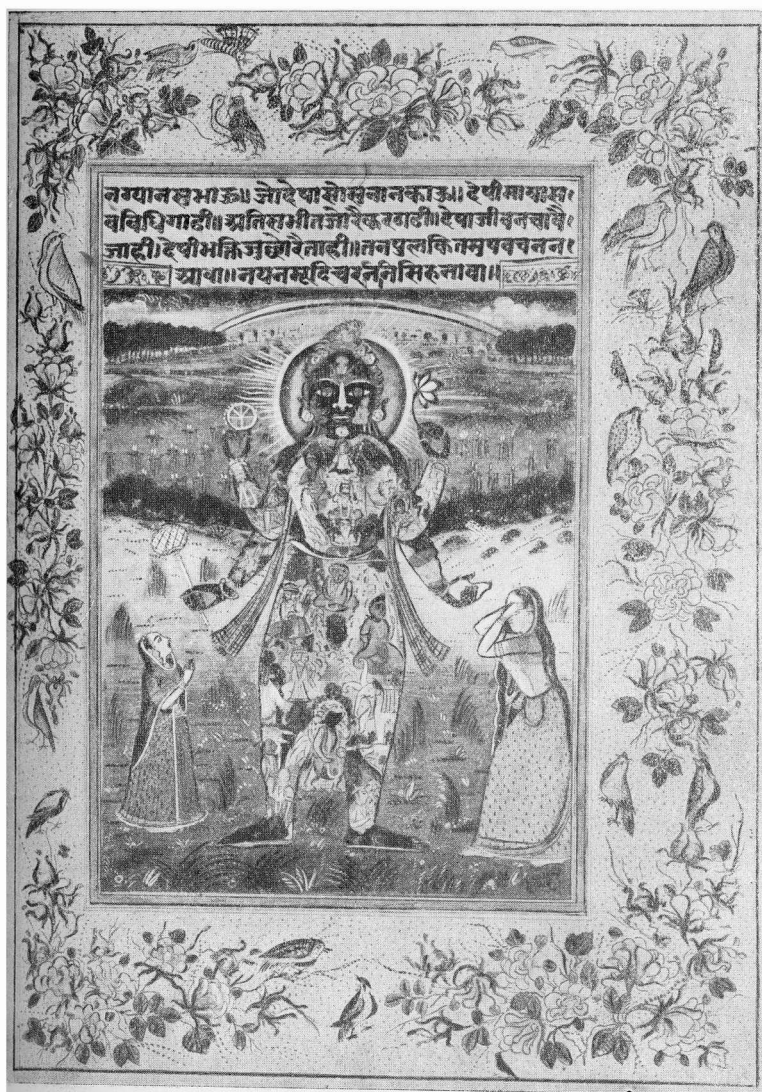 नग्यानसुभाऊ॥ जोदेषासोसुनानकाऊ॥ देषीमायास
वविधिगाढी॥ अतिसभीतजोरेकरठाढी॥ देषाजीवनचावै
जाही॥ देषीभक्तिजुछोरैताही॥ तनपुलकितमुषवचनन
आवा॥ नयनमूदिचरननिसिरुनावा॥